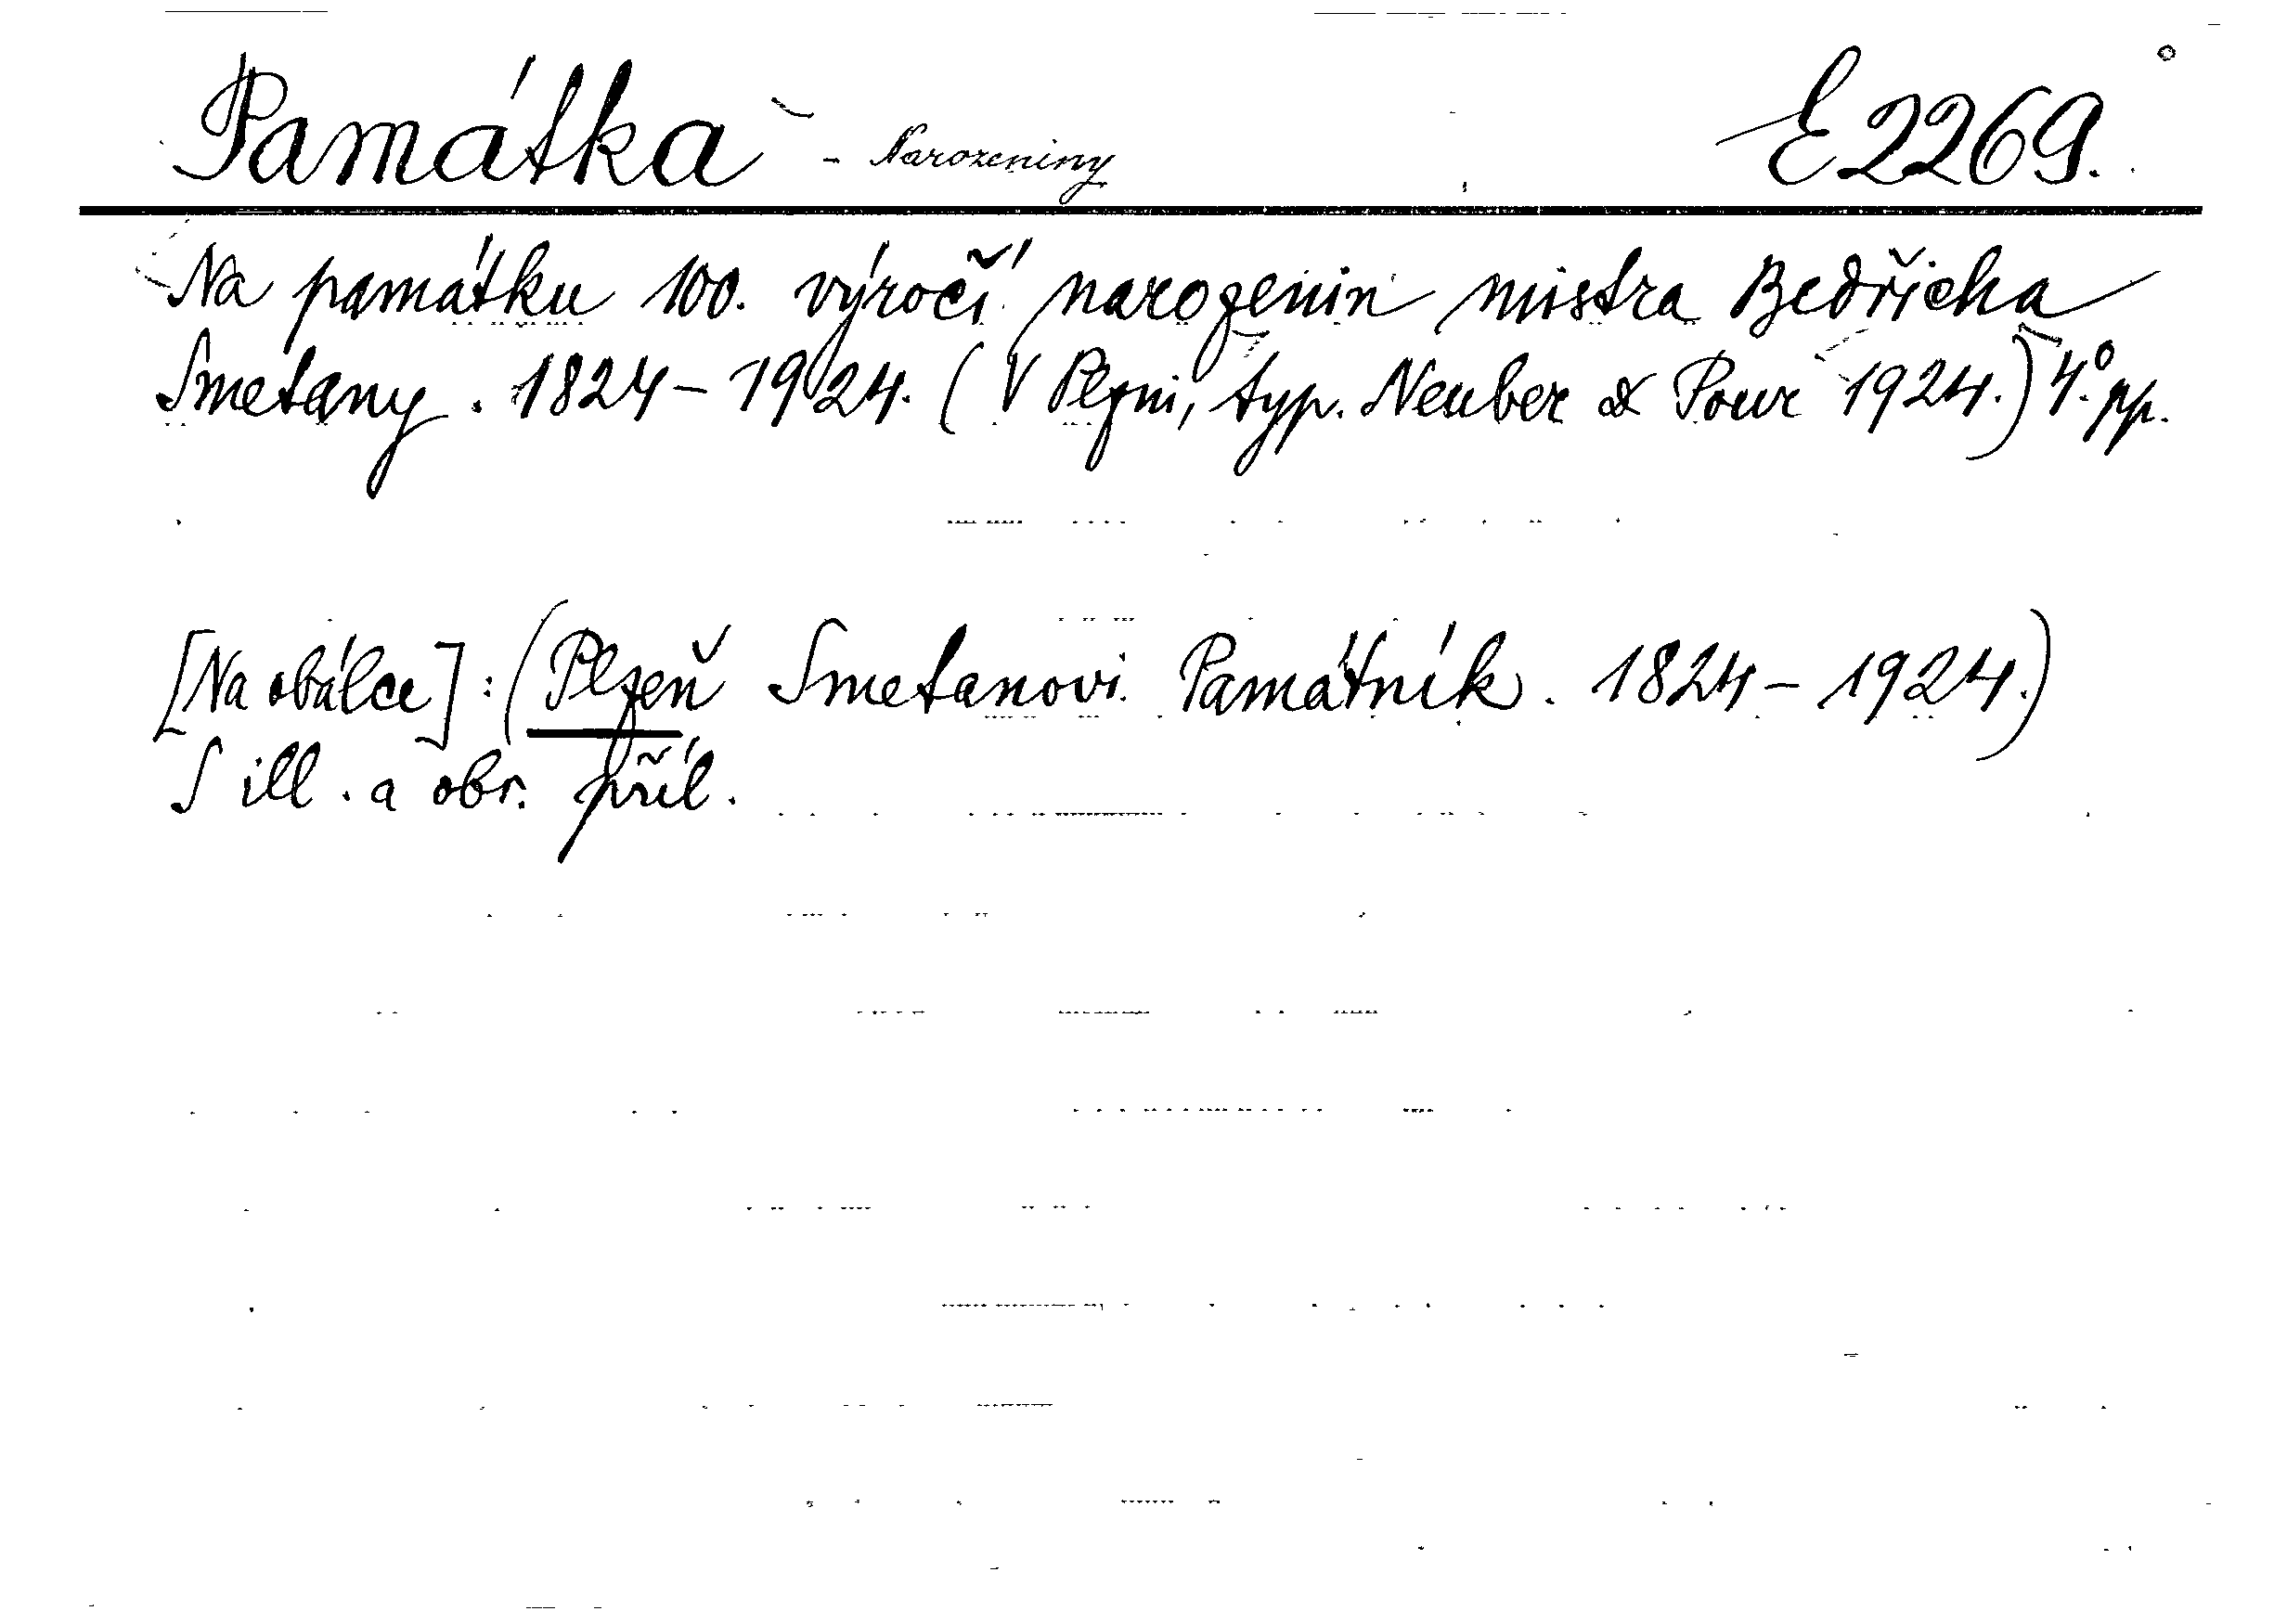 Památka - Narozeniny E 2269.
Na památku 100. výročí narozenin mistra Bedřicha
Smetany. 1824-1924. (V Plzni, typ. Neuber & Pour 1924.) 4.° pp.
[Na obálce]: (Plzeň Smetanovi. Památník. 1824-1924.)
S ill. a obr. příl.